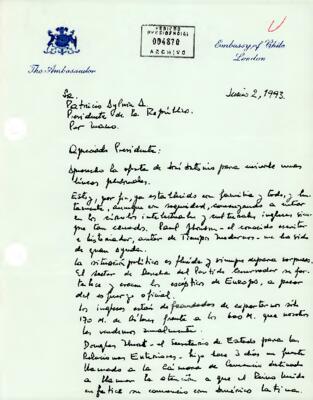 PERIODO
PRESIDENCIAL
004870
ARCHIVO
Embassy of Chile
London
The Ambassador
Junio 2, 1993.
Sr.
Patricio Aylwin A.
Presidente de la República
Por mano.
Apreciado Presidente:
Aprovecho la oferta de José Antonio para enviarle unas
líneas personales.
Estoy, por fin, ya establecido con familia y todo, y
aunque en seguridad, comenzando a entrar
en los círculos intelectuales y culturales ingleses siem-
pre tan cerrados. Paul Johnson - el conocido escritor
e historiador, autor de Tiempos modernos - me ha sido
de gran ayuda.
La situación política es fluida y siempre depara sorpresas.
El sector de derecha del Partido Conservador se for-
talece y crecen los escépticos de Europa, a pesar
del esfuerzo oficial.
Los ingleses están de exportarnos sólo
170 M. de libras frente a los 200 M. que nosotros
les vendimos anualmente.
Douglas Hurd - el Secretario de Estado para las
Relaciones Exteriores - hizo hace 3 días un fuerte
llamado a la Cámara de Comercio destinado
a llamar la atención a que el Reino Unido
su comercio con América Latina.